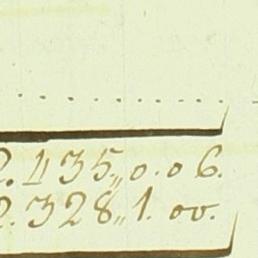 2.435,,0.06.
2.328,,1.00.